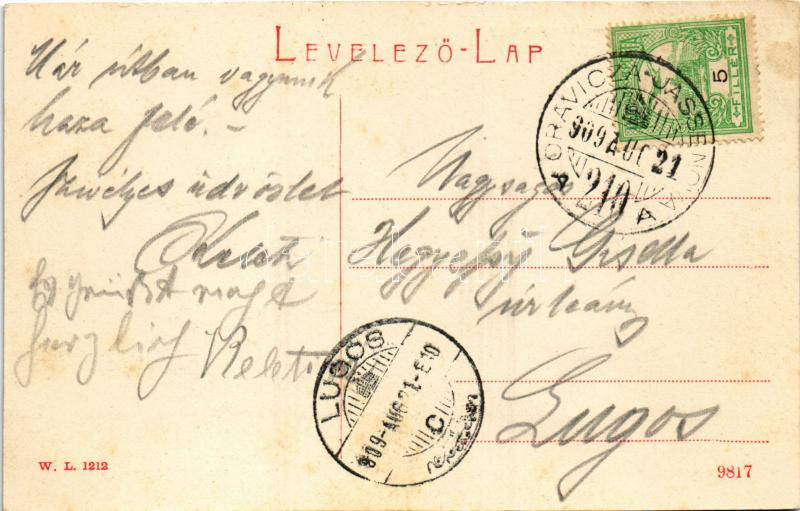 LEVELEZŐ-LAP
Már útban vagyunk
haza felé. –
Szivélyes üdvözlet
herzlich
Nagyságos
Gisella
úrleány
Lugos
5
FILLÉR
ORAVICZA-JASSENOVA
909 AUG 21
210
A A
LUGOS
909-AUG 21-E10
C
W. L. 1212
9817